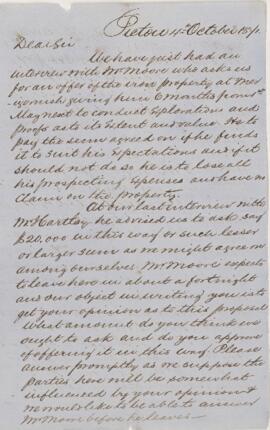 Pictou 4th October 187
Dear Sir
We have just had an
interview with Mr Moore who asks us
for an offer of the iron property at Mer
-igomish giving him 6 months from 1st
May next to conduct Explorations and
proofs as to its Extent and value. He to
pay the sum agreed on if he finds
it to suit his Expectations and if it
should not do so he is to lose all
his prospecting Expenses and have no
claim on the Property.
At our last interview with
Mr Hartley he advised us to ask say
£20,000 in this way or such lesser
or larger sum as we might agree on
among ourselves. Mr Moore expects
to leave here in about a fortnight
and our object in writing you is to
get your opinion as to this proposal
what amount do you think we
ought to ask and do you approve
of offering it in this way. Please
answer promptly as we suppose the
Parties here will be somewhat
influenced by your opinion &
we would like to be able to answer
Mr Moore before he leaves—